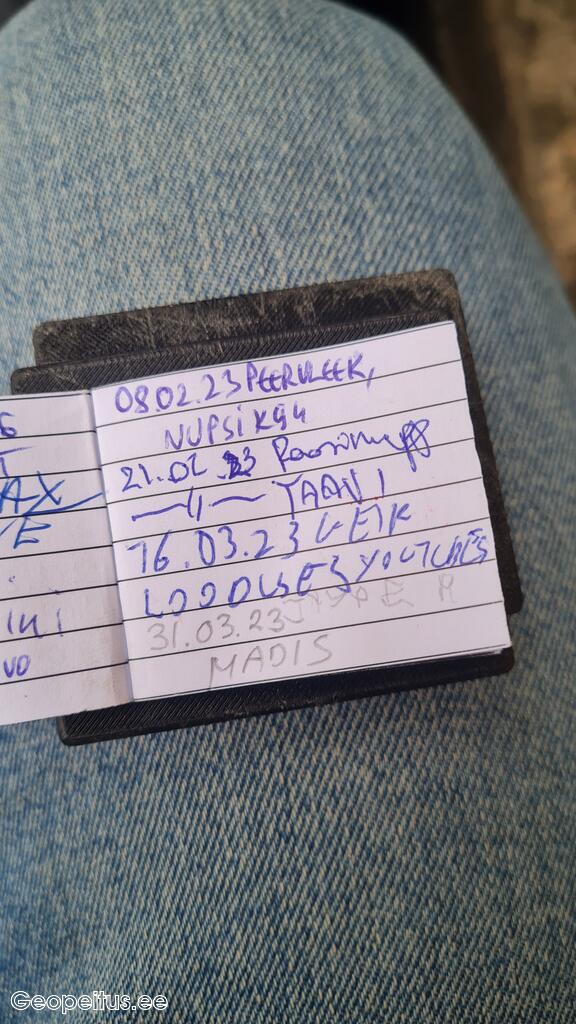 6
T
AX
VE
ini
vo
08.02.23 PEERULEEK,
NUPSIK94
21.02.23
—〃— TAAVI
16.03.23 GEIR
LOODUSES
31.03.23
MADIS
Geopeitus.ee